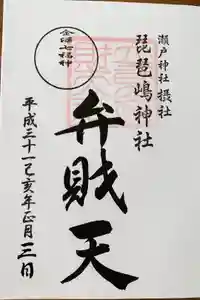 瀬戸神社 摂社
琵琶嶋神社
金澤七福神
弁財天
平成三十一己亥年正月三日